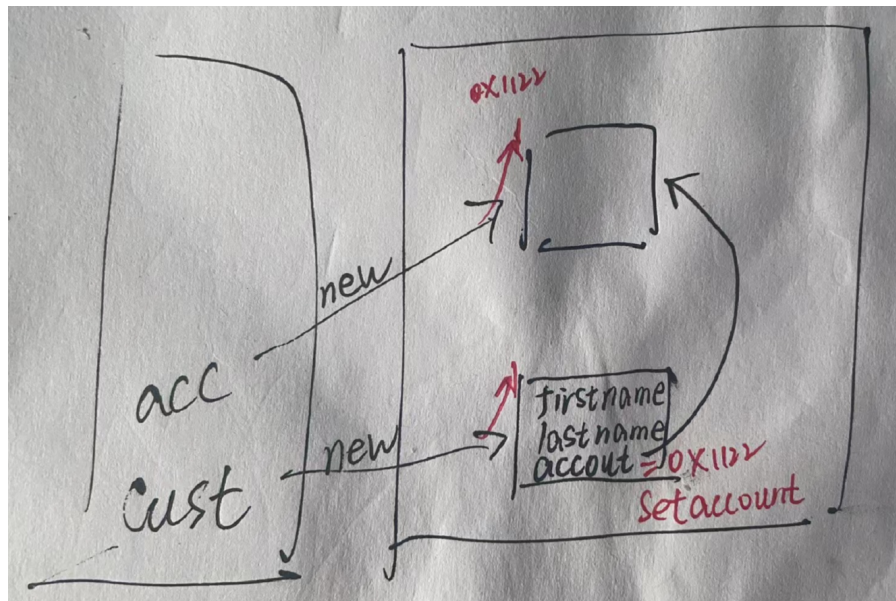 0X1122
new
acc
new
Cust
firstname
lastname
accout = 0X1122
Setaccount